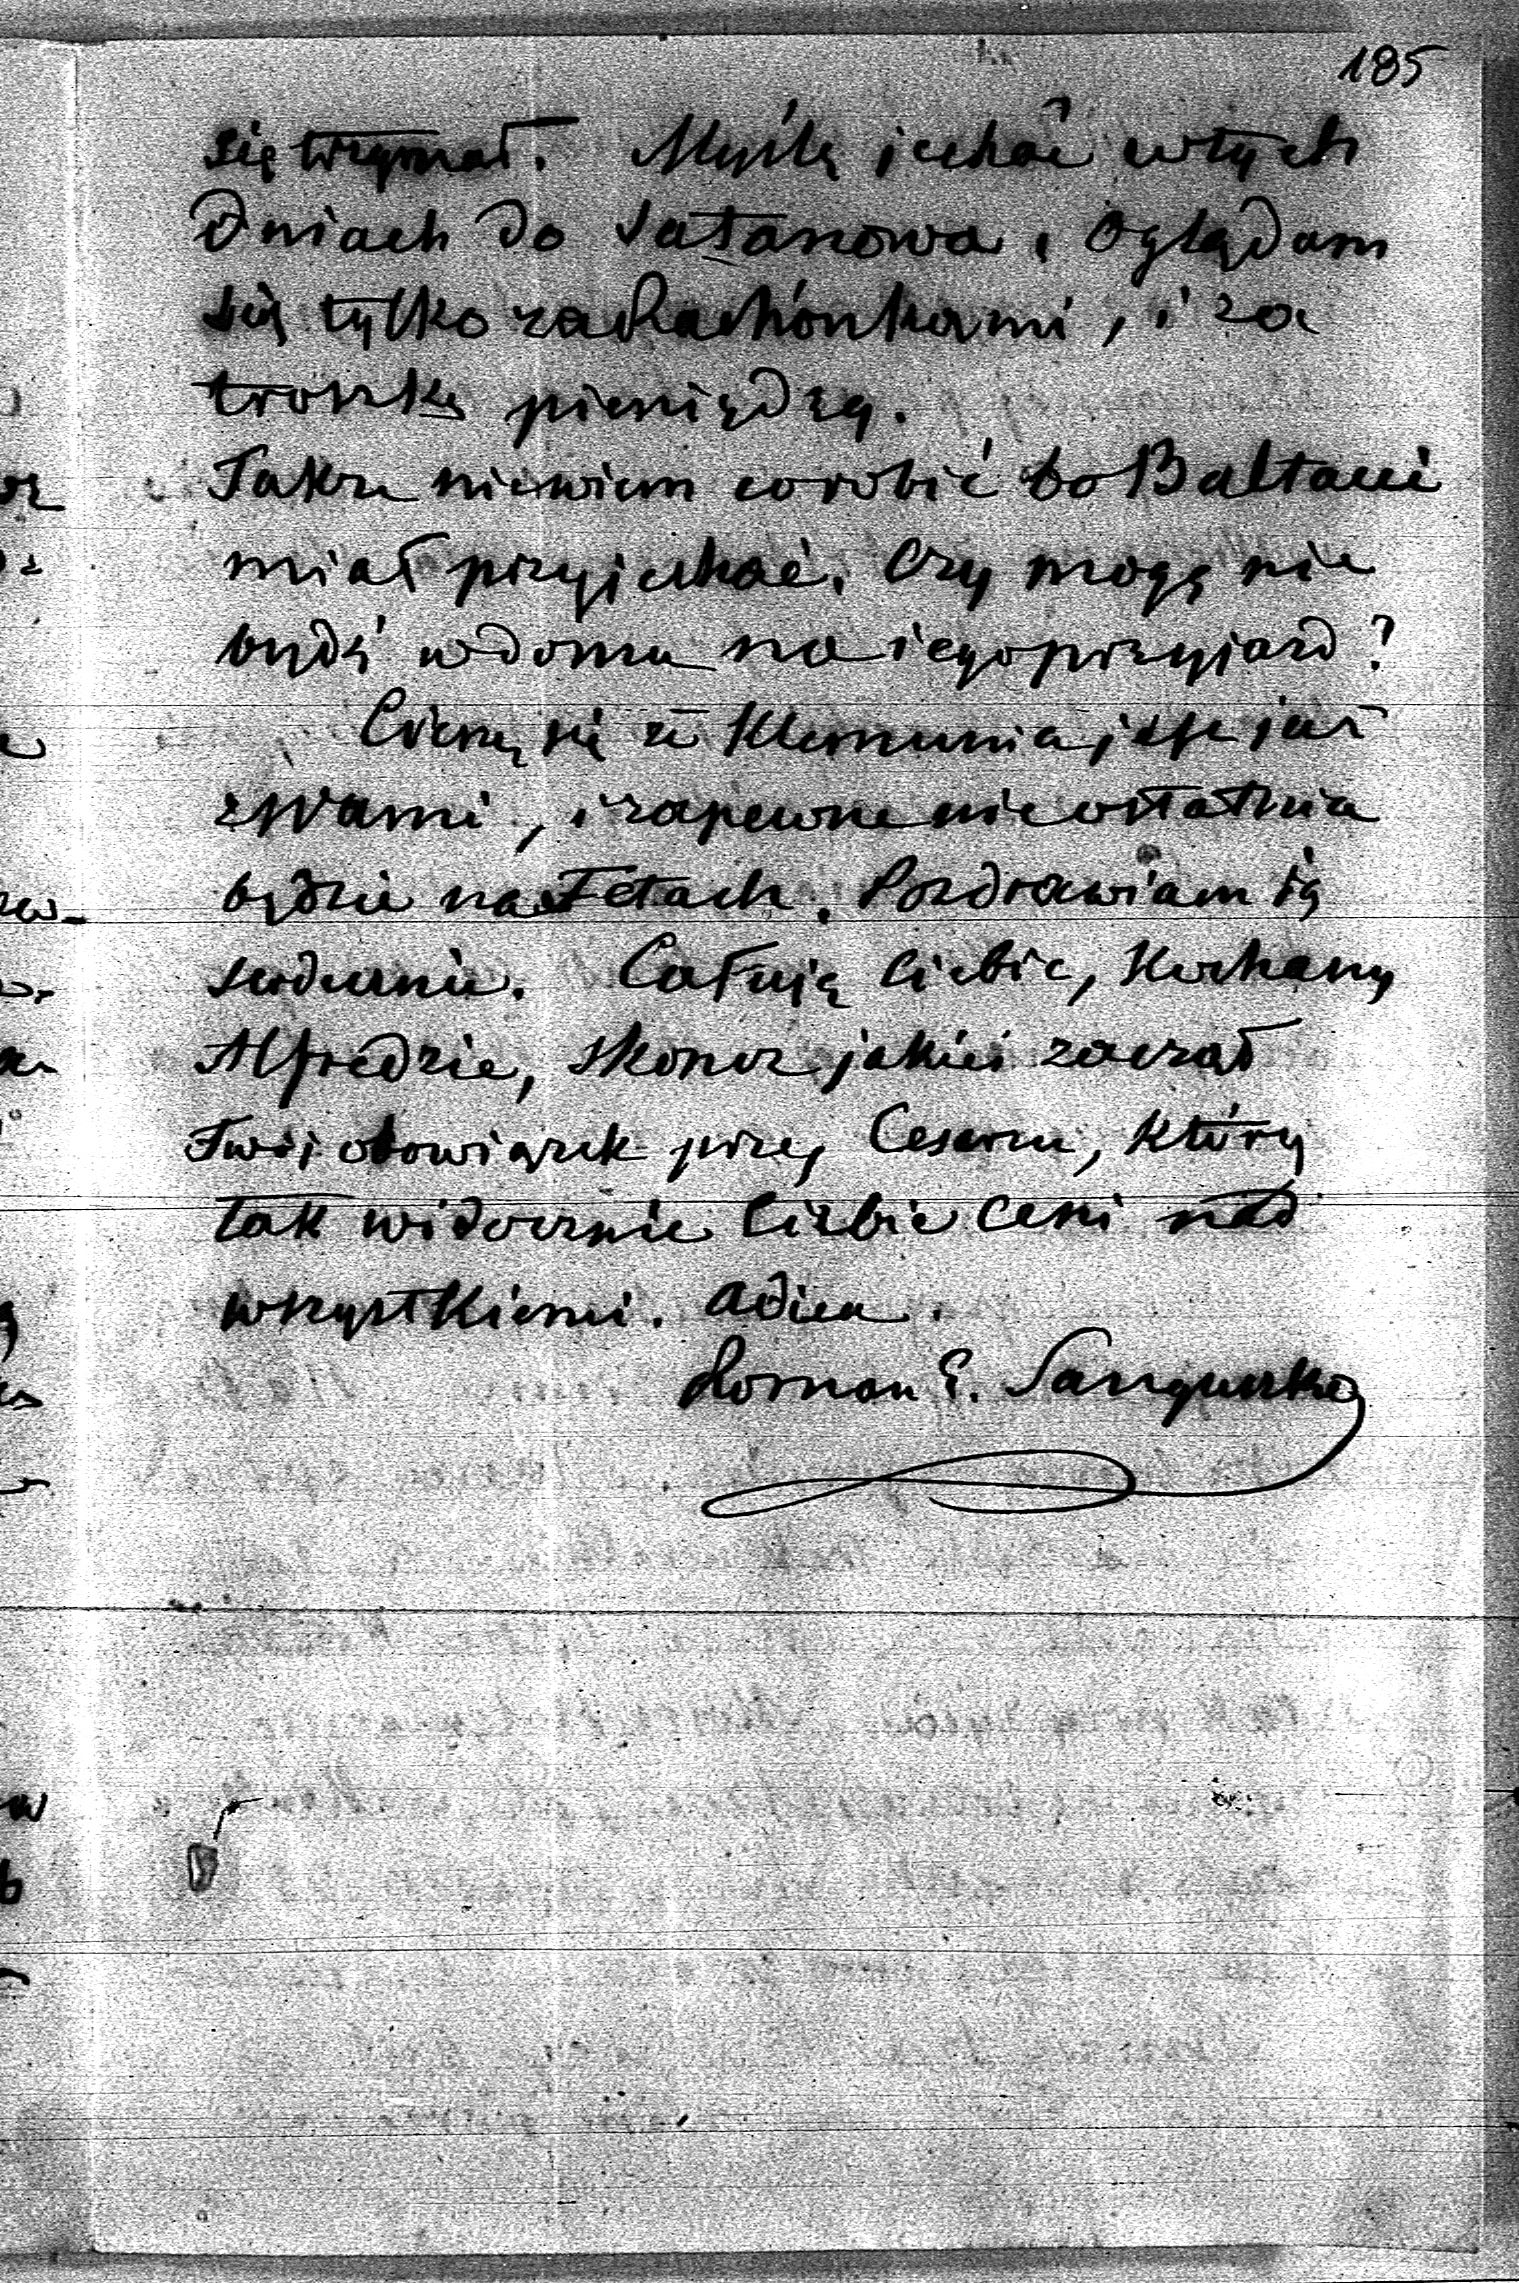 185
się trzymał. Myślę jechać w tych
Dniach do Satanowa, oglądam
się tylko za Rachónkami, i za
troszkę pieniędzy.
Także niewiem co robić bo Baltazzi
miał przyjechać. Czy mogę nie
bydź w domu na iego przyjazd?
Cieszę się że Klemunia jest już
z Wami, i zapewne nie ostatnia
będzie na Fetach. Pozdrawiam ią
serdecznie. Całuję Ciebie, Kochany
Alfredzie, skończ jakieś zaczął
Twój obowiązek przy Cesarzu, który
tak widocznie Ciebie Ceni nad
wszystkiemi. Adieu.
Roman E. Sanguszko